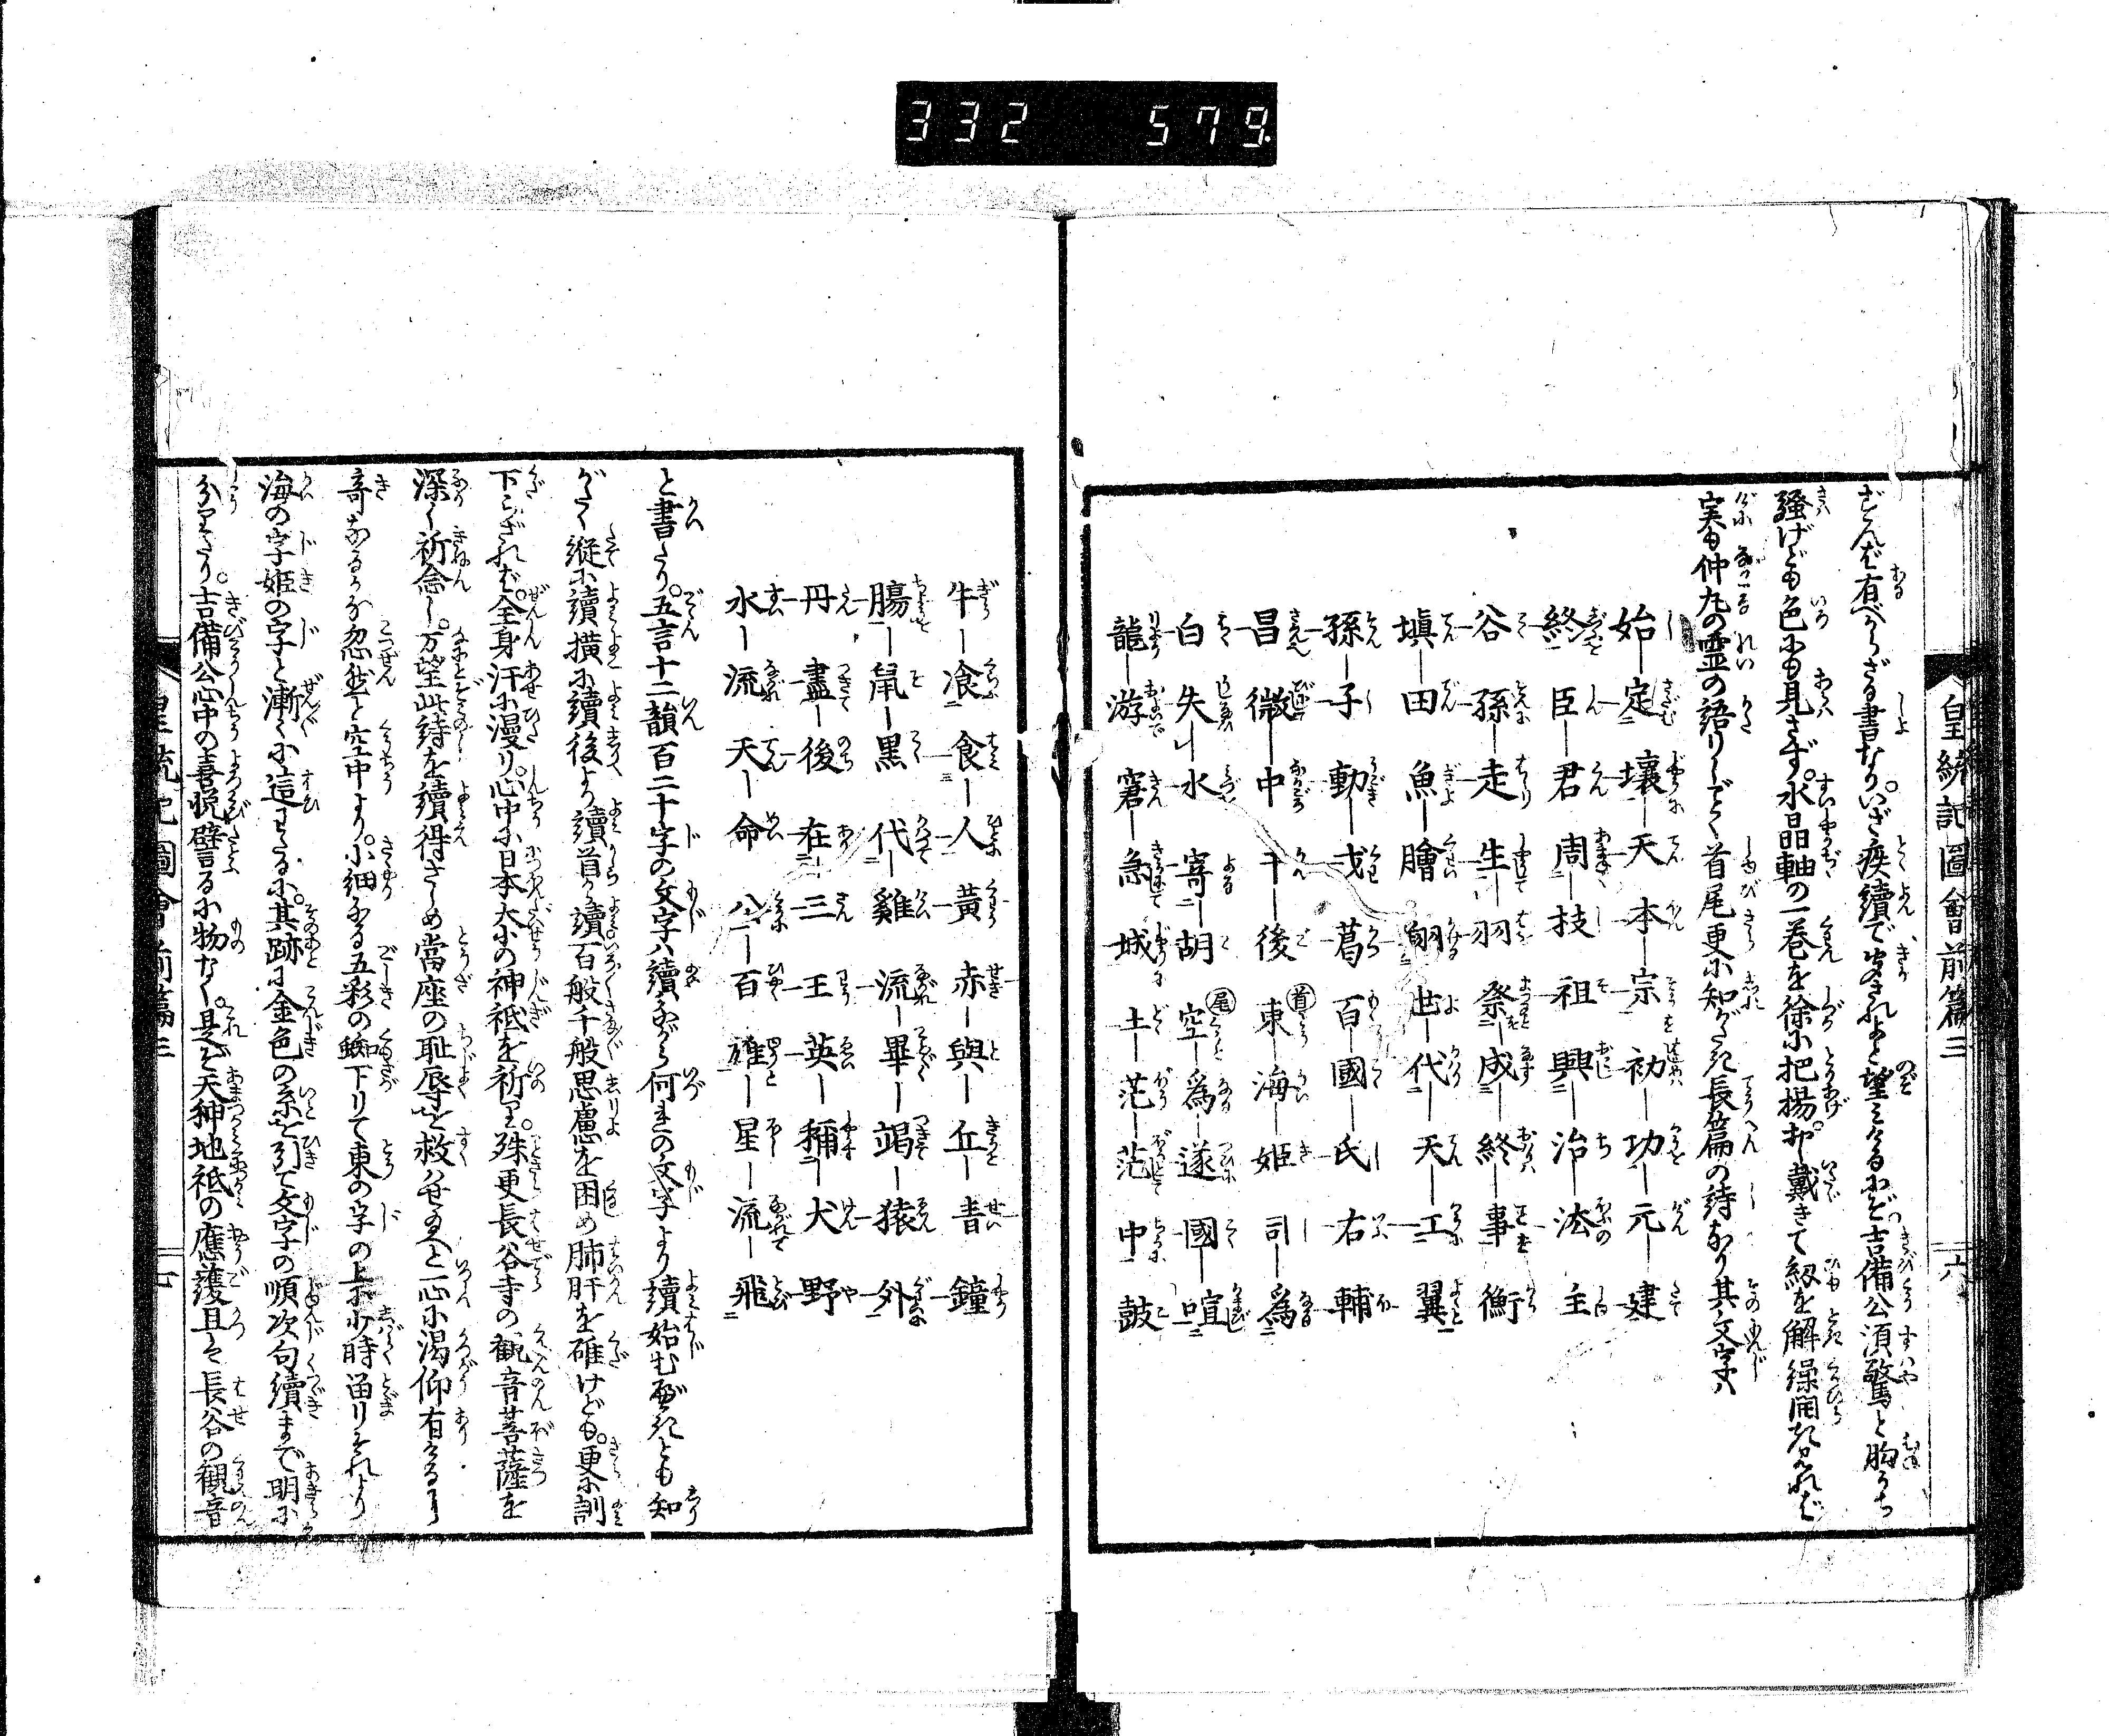 332 579
皇統記圖會前篇三
六
ずんば有べからざる書なり。いざ疾續で聞されよと望みけるにぞ吉備公須驚と胸うち
騒げども色にも見さず。水晶軸の一巻を徐に把揚。押戴きて紐を解繰開きみれば
実も仲丸の霊の語りしごとく首尾更に知がたき長篇の詩なり其文字は
始定壤天本宗初功元建
終臣君周枝祖興治法主
谷孫走生羽祭成終事衡
塡田魚膾翔世代天工翼
孫子動戈葛百國氏右輔
昌微中干後東海姫司爲
白失水寄胡空爲遂國喧
龍游窘急城土茫茫中鼓
牛飡食人黃赤與丘青鐘
腸鼠黒代雞流畢竭猿外
丹盡後在三王英稱犬野
水流天命公百雄星流飛
と書たり。五言十二韻百二十字の文字は續ながら何れの文字より續始むべきとも知
がたく縦に續横に續後より續首より續百般千般思慮を困め肺肝を碓けども。更に訓
下らざれば。全身汗に漫り。心中に日本大小の神祇を祈り。殊更長谷寺の観音菩薩を
深く祈念し。万望此詩を續得さしめ當座の耻辱を救せ玉へと一心に渇仰有けるに
奇なるかな忽然と空中より。小細なる五彩の蜘下りて東の字の上に少時畄りそれより
海の字姫の字と漸々に這わたるに。其跡に金色の糸を引て文字の順次句續まで明に
分りたり。吉備公心中の喜悦譬るに物なく。是ぞ天神地祇の應護且は長谷の観音